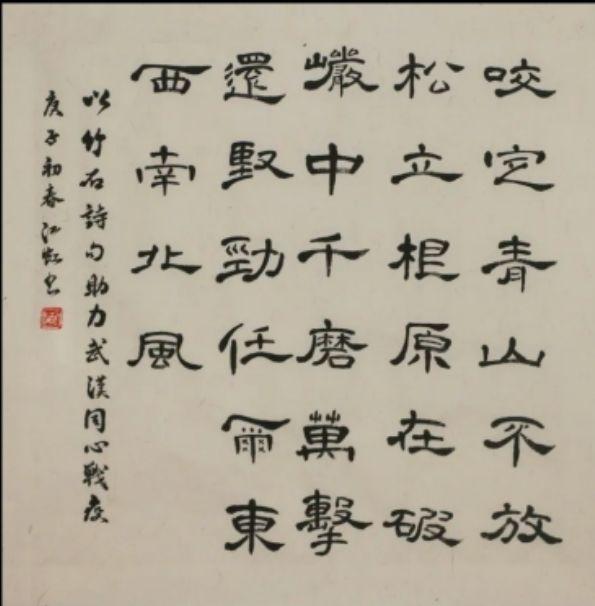 咬定青山不放
松立根原在破
巖中千磨萬擊
還堅勁任爾東
西南北風
以竹石詩句助力武漢同心戰疫
庚子初春江虹書